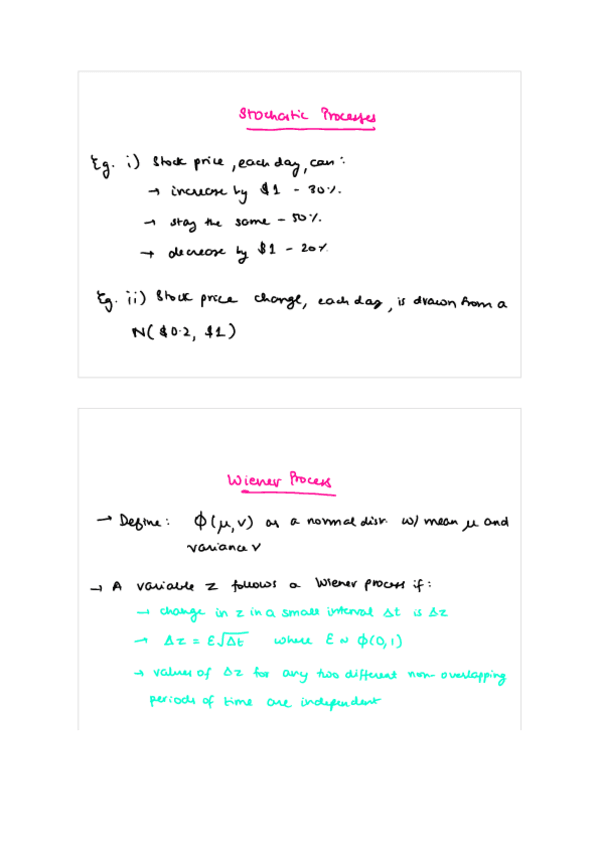 Stochastic Processes
Eg. i) Stock price, each day, can:
→ increase by $1 - 30%.
→ stay the same - 50%.
→ decrease by $1 - 20%
Eg. ii) Stock price change, each day, is drawn from a
N($0.2, $1)
Wiener Process
→ Define: ϕ(μ,v) as a normal distr. w/ mean μ and
variance v
→ A variable z follows a Wiener process if:
→ change in z in a small interval Δt is Δz
→ Δz = ε√Δt where ε ~ ϕ(0,1)
→ values of Δz for any two different non-overlapping
periods of time are independent